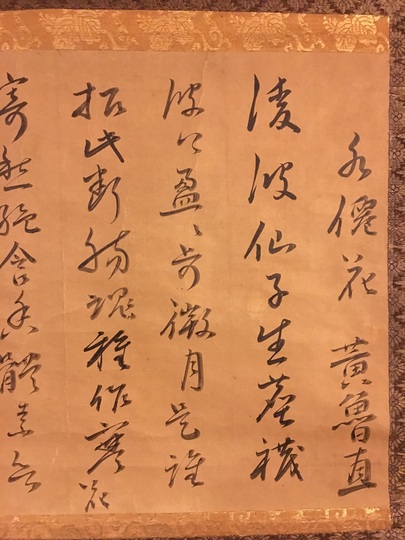 水僊花 黄魯直
淩波仙子生塵襪
波上盈〻步微月是誰
招此斷腸魂種作寒花
寄愁絶含香體素欲